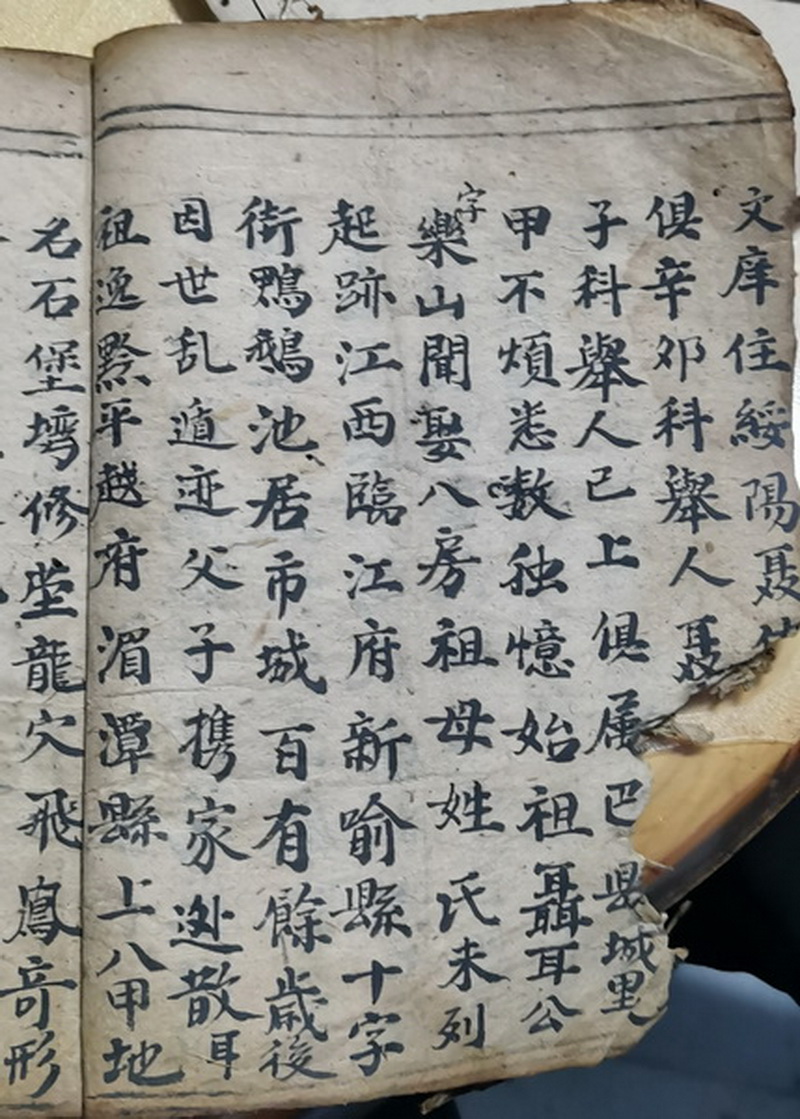 文庠住綏陽聂
俱辛夘科舉人聂
子科舉人已上俱属巴县城里
甲不煩悉敷独憶始祖聶耳公
字樂山聞娶八房祖母姓氏未列
起跡江西臨江府新喻縣十字
街鴨鵝池居市城百有餘歲後
因世乱遁迹父子携家逃散耳
祖逸黔平越府湄潭縣上八甲地
名石堡塆修塋龍穴飛鳳奇形